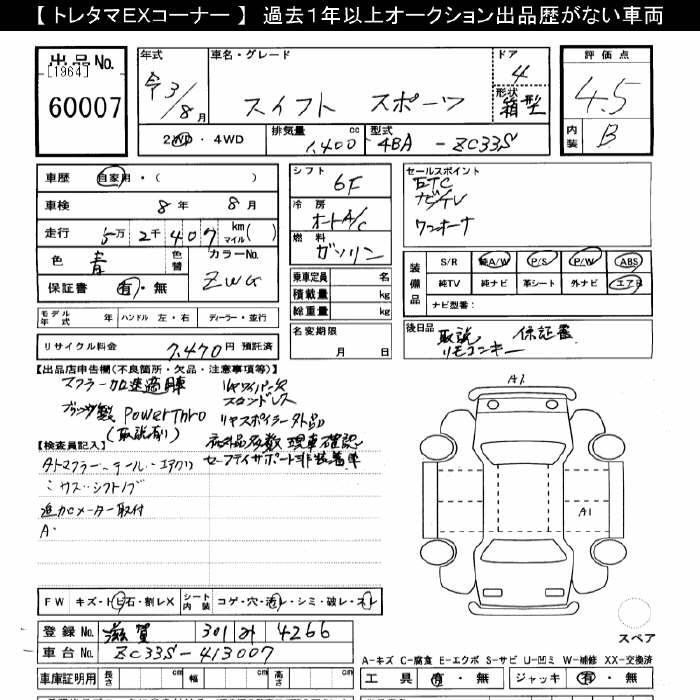 【 トレタマEXコーナー 】 過去1年以上オークション出品歴がない車両
出品No.
[1964]
60007
年式 令3/8月
車名・グレード
スイフト スポーツ
ドア 4
形状 箱型
評価点 4.5
内装 B
2WD・4WD
排気量 1,400 cc
型式 4BA - ZC33S
車歴 自家用・( )
車検 8年 8月
走行 5万2千407 km マイル( )
色 青 色替
カラーNo. ZWG
保証書 有・無
モデル年式 年 ハンドル 左・右 ディーラー・並行
リサイクル料金 7,470円 預託済
シフト 6F
冷房 オートA/C
燃料 ガソリン
乗車定員 名
積載量 kg
総重量 kg
名変期限
月 日
セールスポイント
ETC
ナビTV
ワンオーナ
装備品
S/R 純A/W P/S P/W ABS
純TV 純ナビ 革シート 外ナビ エアB
ナビ型番:
後日品 取説 保証書
リモコンキー
【出品店申告欄(不良箇所・欠品・注意事項等)】
マフラー加速適用車
ブリッツ製 Power Thro
(取説有り)
リヤワイパーレス
スタンドレス
リヤスポイラー外品
社外品多数 現車確認
セーフティサポート非装着車
【検査員記入】
外マフラー・テール・エアクリ
シフトノブ
追加メーター取付
A・
A1
A1
FW キズ・トビ石・割レX
シート内装 コゲ・穴・汚レ・シミ・破レ・スレ
スペア
登録No. 滋賀 301 4266
車台No. ZC33S-413007
A-キズ C-腐食 E-エクボ S-サビ U-凹ミ W-補修 XX-交換済
車庫証明用 長さ cm 幅 cm 高さ cm
工具 有・無 ジャッキ 有・無